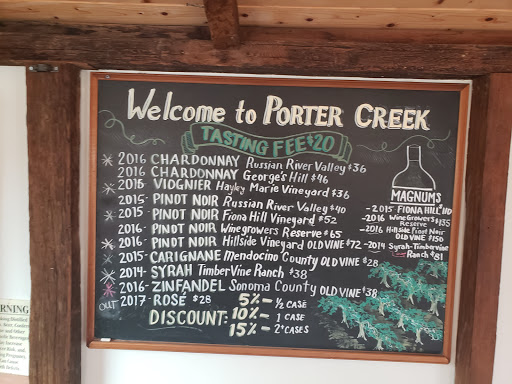 Welcome to PORTER CREEK
TASTING FEE $20
2016 CHARDONNAY Russian River Valley $36
2016 CHARDONNAY George's Hill $46
2015 VIOGNIER Hayley Marie Vineyard $36
2015- PINOT NOIR Russian River Valley $40
2015- PINOT NOIR Fiona Hill Vineyard $52
2016- PINOT NOIR Winegrowers Reserve $65
2016- PINOT NOIR Hillside Vineyard OLD VINE $72
2015- CARIGNANE Mendocino County OLD VINE $28
2014- SYRAH Timber Vine Ranch $38
2016- ZINFANDEL Sonoma County OLD VINE $38
OUT 2017- ROSÉ $28
DISCOUNT: 5% - ½ CASE
10% - 1 CASE
15% - 2+ CASES
MAGNUMS
-2015 FIONA HILL $110
-2016 Winegrowers $135
Reserve
-2016 Hillside Pinot Noir
OLD VINE $150
-2014 Syrah-Timbervine
Ranch $81
WARNING